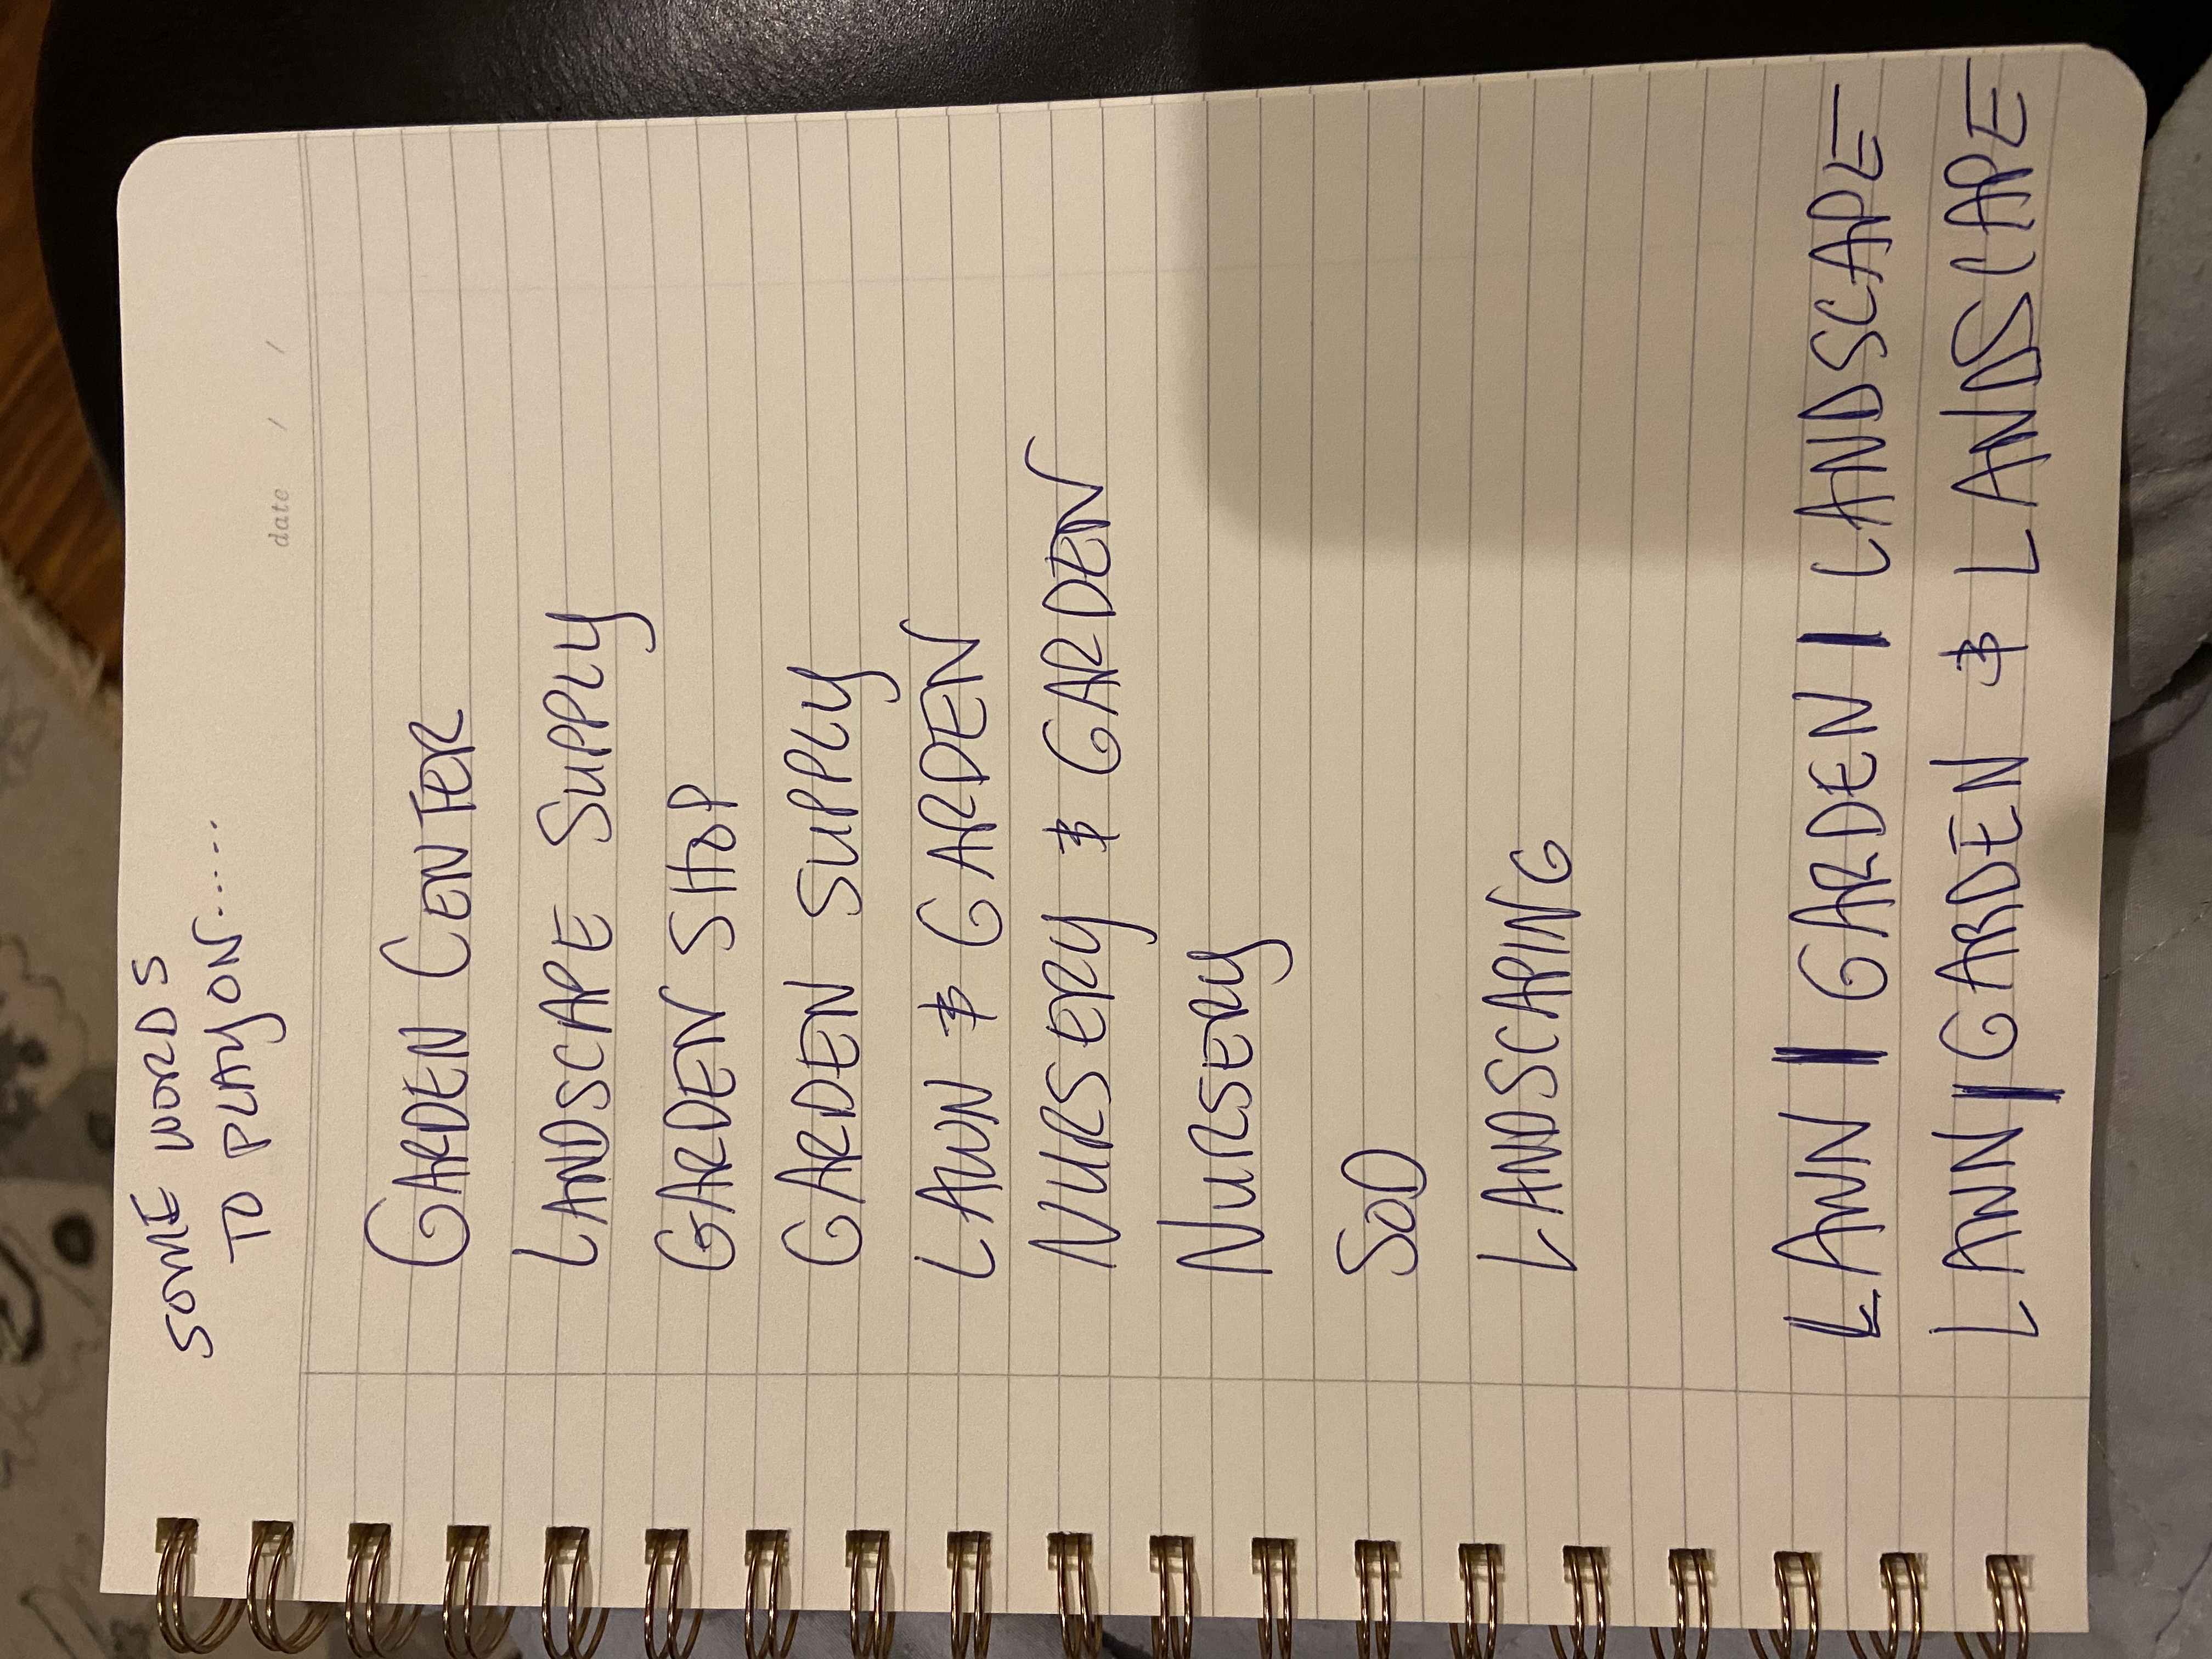 SOME WORDS
TO PLAY ON.....
date / /
GARDEN CENTER
LANDSCAPE SUPPLY
GARDEN SHOP
GARDEN SUPPLY
LAWN & GARDEN
NURSERY & GARDEN
NURSERY
SOD
LANDSCAPING
LAWN | GARDEN | LANDSCAPE
LAWN | GARDEN & LANDSCAPE